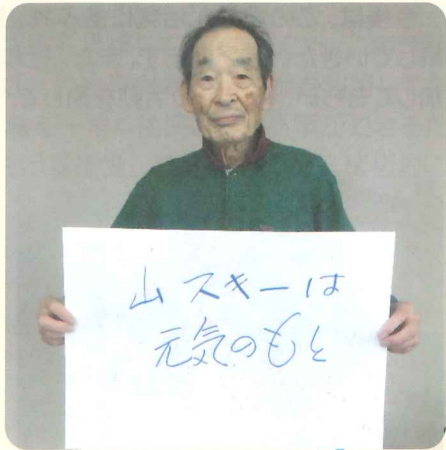 山スキーは
元気のもと